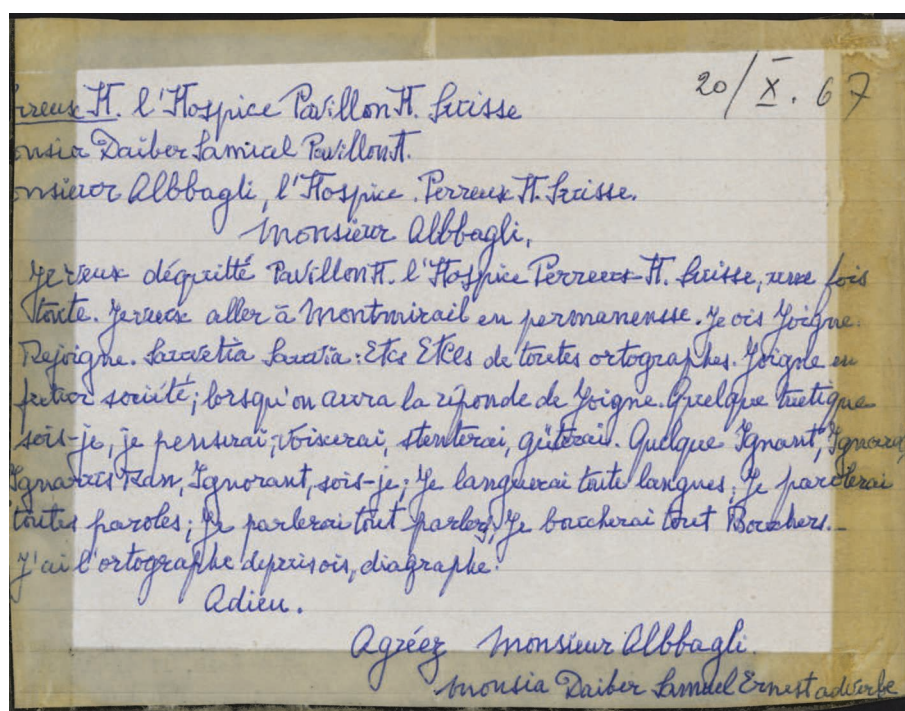 20/X.67
Perreux H. l'Hospice Pavillon H. Suisse
onsia Daiber Samuel Pavillon H.
onsieur Albbagli, l'Hospice. Perreux H. Suisse.
Monsieur Albbagli,
Je veux déquitté Pavillon H. l'Hospice Perreux H. Suisse, une fois
toute. Je veux aller à Montmirail en permanensse. Je ois Joigne.
Rejoigne. : Etes Etes de toutes ortographes. Joigne en
société; lorsqu'on aura la réponde de Joigne. Quelque
sois-je, je penserai, voiserai, stenterai, gûterai. Quelque Ignant,
Ignorant, sois-je; Je languerai toute langues; Je parolerai
toutes paroles; Je parlerai tout parlers; Je boucherai tout Bouchers.
J'ai l'ortographe depuis ois, diagraphe.
Adieu.
Agréez Monsieur Albbagli.
Monsia Daiber Samuel Ernest adverbe